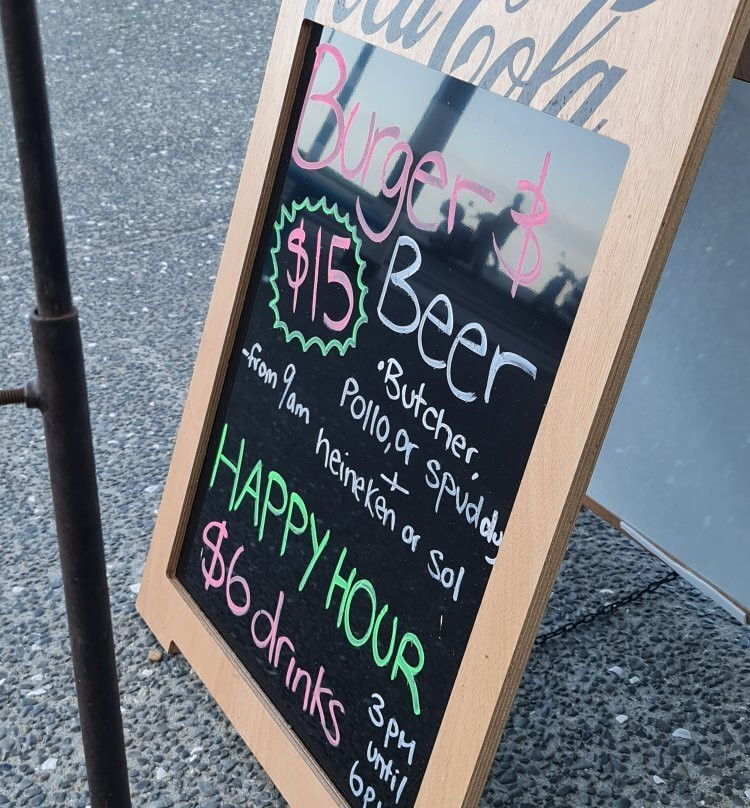 Coca-Cola
Burger &
$15 Beer
-from 9am
•Butcher,
Pollo, or spuddy
+
heineken or sol
HAPPY HOUR
$6 drinks
3PM
until
6PM